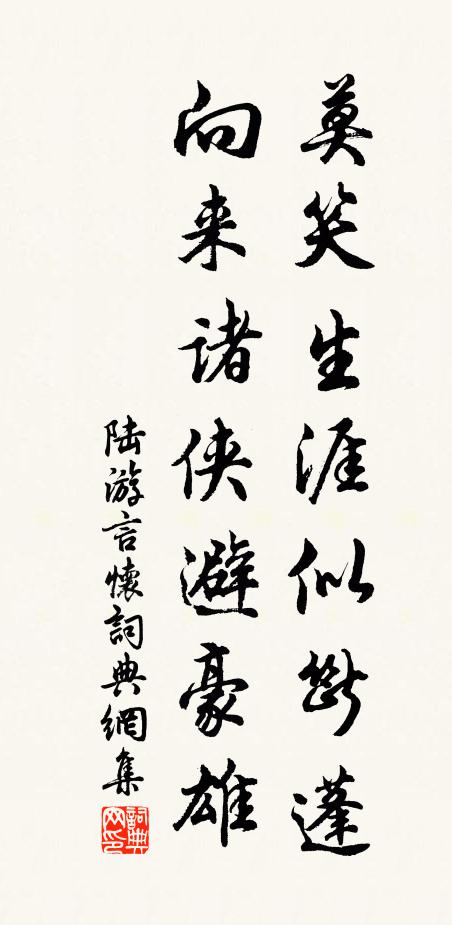 莫笑生涯似断蓬
向来諸侠避豪雄
陆游言懷詞典網集
詞典网印